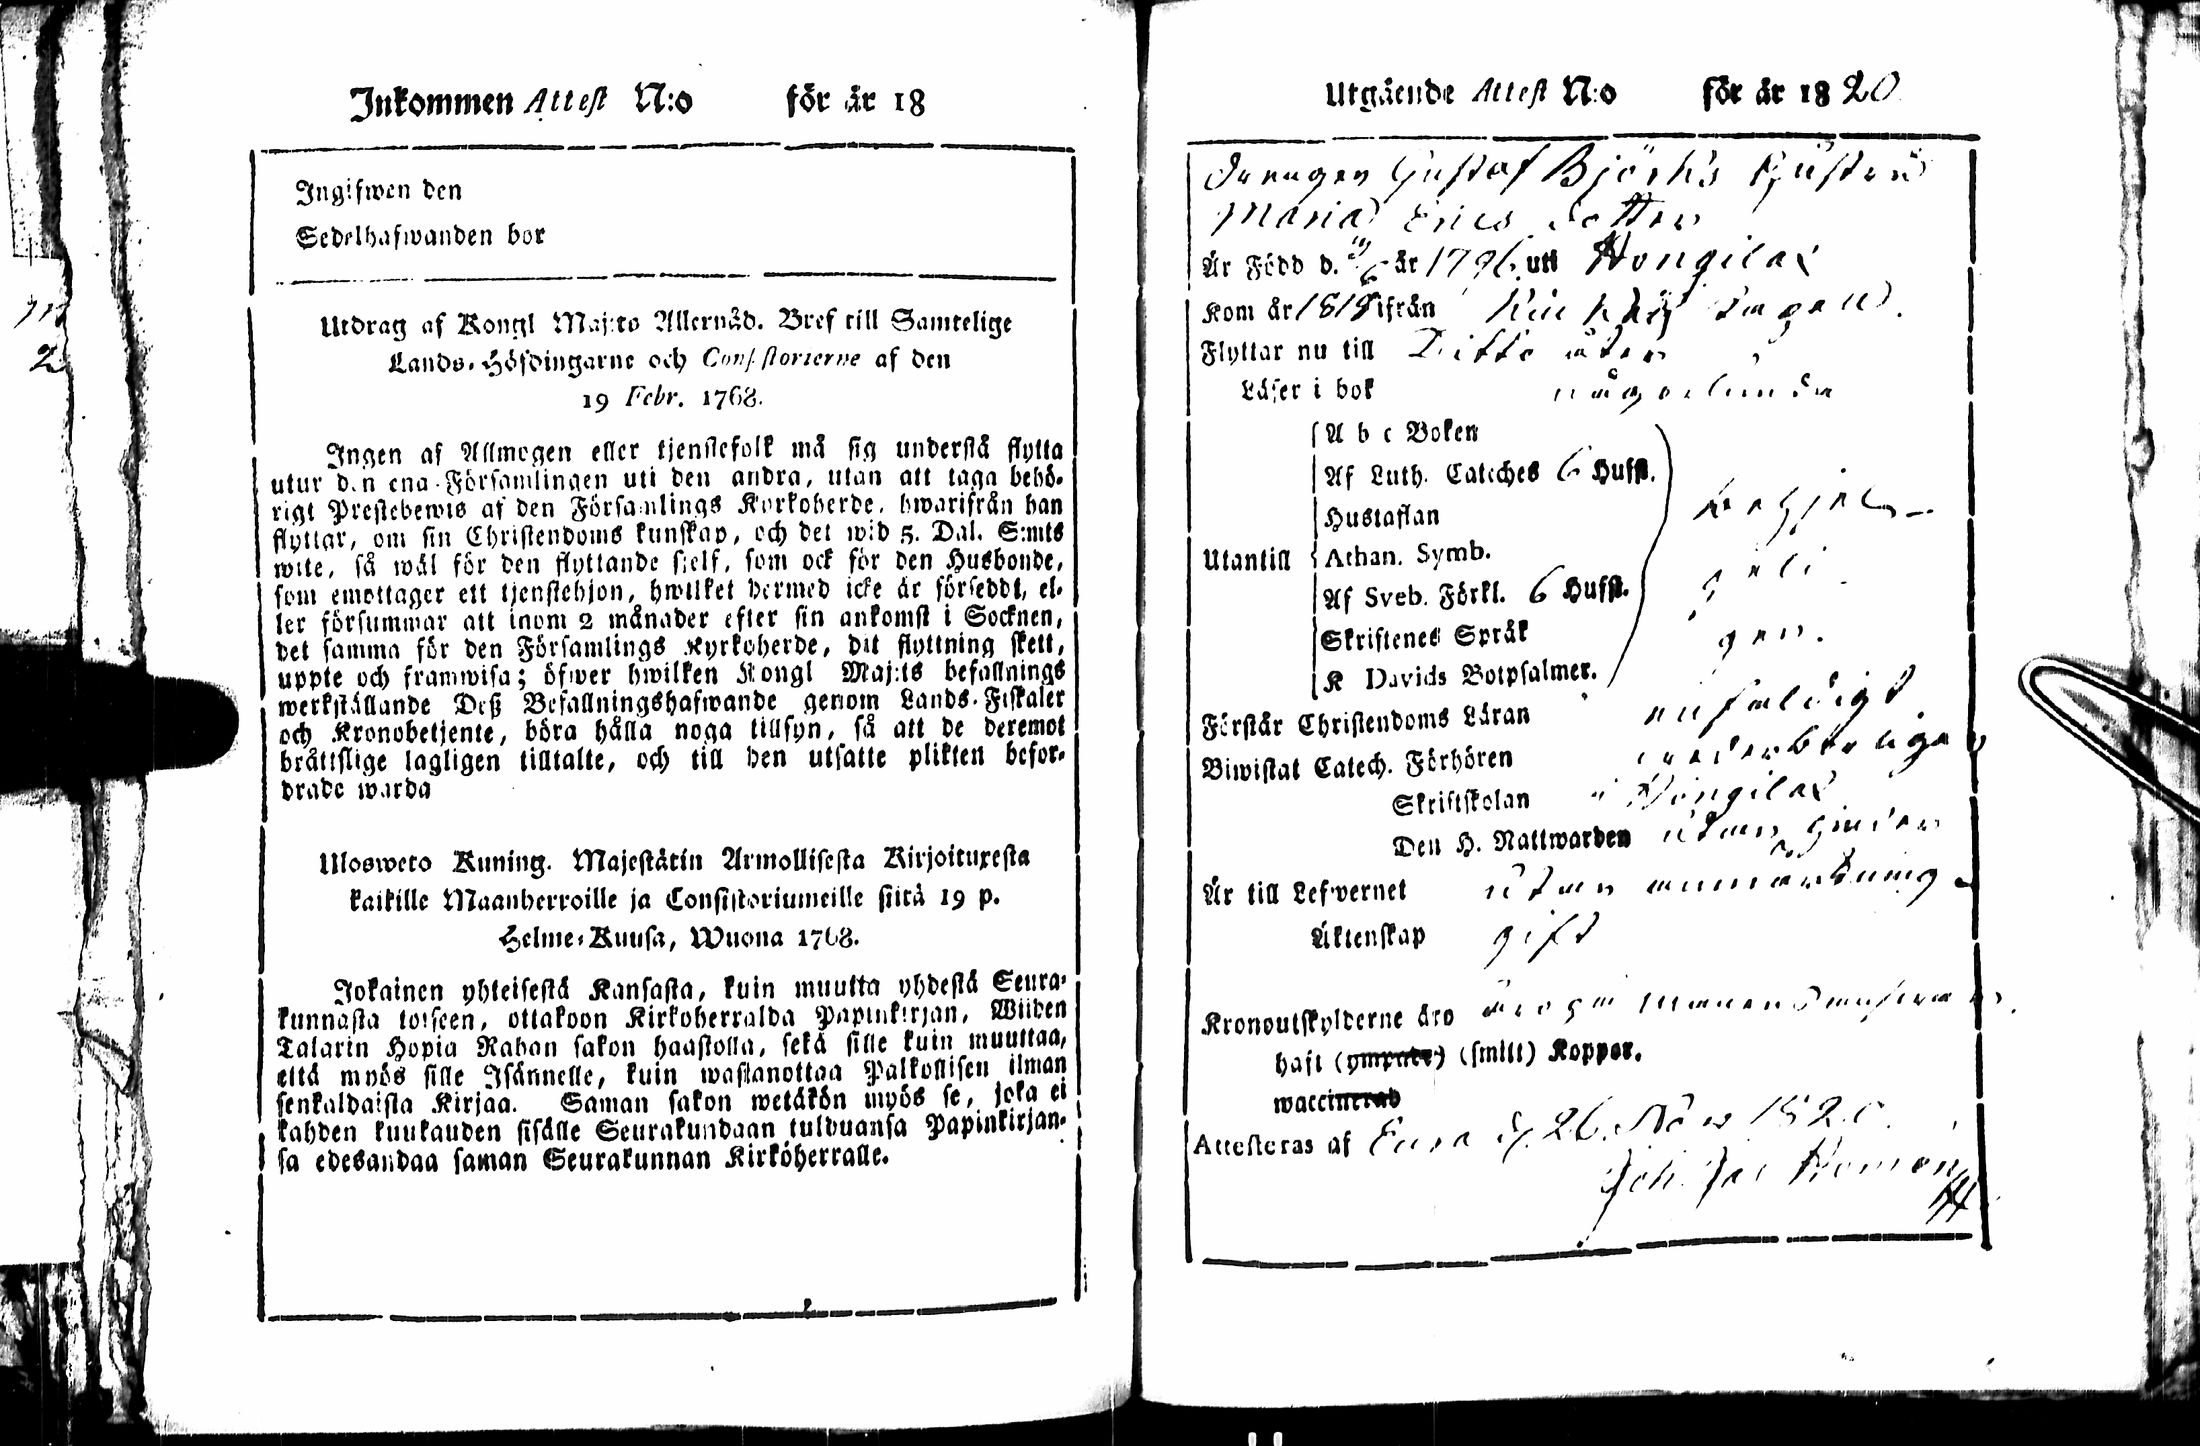 Inkommen Attest N:o för år 18
Ingifwen den
Sedelhafwanden bor
Utdrag af Kongl Maj:ts Allernåd. Bref till Samtelige
Lands-Höfdingarne och Consistorierne af den
19 Febr. 1768.
Ingen af Allmogen eller tjenstefolk må sig understå flytta
utur den ena Församlingen uti den andra, utan att taga behö-
rigt Prestebewis af den Församlings Kyrkoherde, hwarifrån han
flyttar, om sin Christendoms kunskap, och det wid 5. Dal. S:mts
wite, så wäl för den flyttande sjelf, som ock för den Husbonde,
som emottager ett tjenstehjon, hwilket hermed icke är förseddt, el-
ler försummar att inom 2 månader efter sin ankomst i Socknen,
det samma för den Församlings Kyrkoherde, dit flyttning skett,
uppte och framwisa; öfwer hwilken Kongl Maj:ts befallnings
werkställande Deß Befallningshafwande genom Lands-Fiskaler
och Kronobetjente, böra hålla noga tillsyn, så att de deremot
bråttslige lagligen tilltalte, och till den utsatte plikten befor-
drade warda
Ulosweto Kuning. Majestätin Armollisesta Kirjoituxesta
kaikille Maanherroille ja Consistoriumeille siitä 19 p.
Helme-Kuusa, Wuona 1768.
Jokainen yhteisestä Kansasta, kuin muutta yhdestä Seura-
kunnasta toiseen, ottakoon Kirkoherralda Papinkirjan, Wiiden
Talarin Hopia Rahan sakon haastolla, sekä sille kuin muuttaa,
että myös sille Isännelle, kuin wastanottaa Palkollisen ilman
senkaldaista Kirjaa. Saman sakon wetäkön myös se, joka ei
kahden kuukauden sisälle Seurakundaan tulduansa Papinkirjan-
sa edesandaa saman Seurakunnan Kirköherralle.
Utgående Attest N:o för år 1820
Drängen Gustaf Björks Hustru
Maria Erics dotter
Är Född d. 6 år 1796 uti Hongilax
Kom år 1818 ifrån
Flyttar nu till Ditto åter
Läser i bok någorlunda
A b c Boken
Af Luth. Cateches 6 Hufst.
Hustaflan
Utantill Athan. Symb.
Af Sveb. Förkl. 6 Hufst.
Skriftenes Språk
K Davids Botpsalmer.
Förstår Christendoms Läran enfaldigt
Biwistat Catech. Förhören wederbörligen
Skriftskolan i Hongilax
Den H. Nattwarden utan hinder
Är till Lefwernet utan anmärkning
Äktenskap gift
Kronoutskylderne äro
haft (ympade) (smitt) Koppor.
waccinerad
Attesteras af Eura d. 26. Nov 1820.